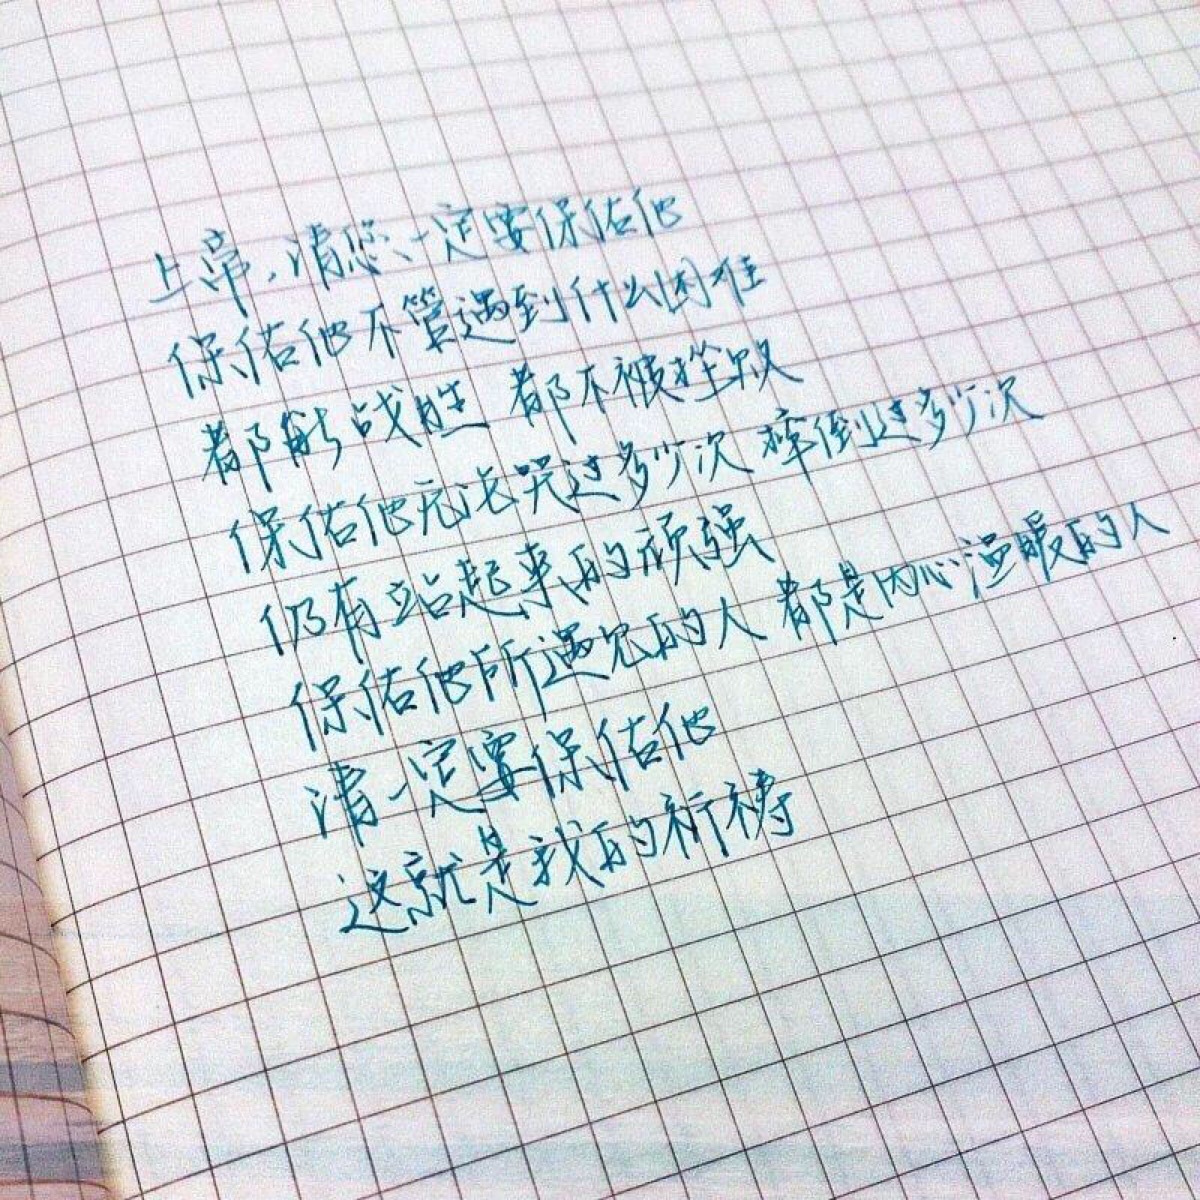 上帝,请您一定要保佑他
保佑他不管遇到什么困难
都能战胜 都不被挫败
保佑他无论哭过多少次 摔倒过多少次
仍有站起来的顽强
保佑他所遇见的人 都是内心温暖的人
请一定要保佑他
这就是我的祈祷